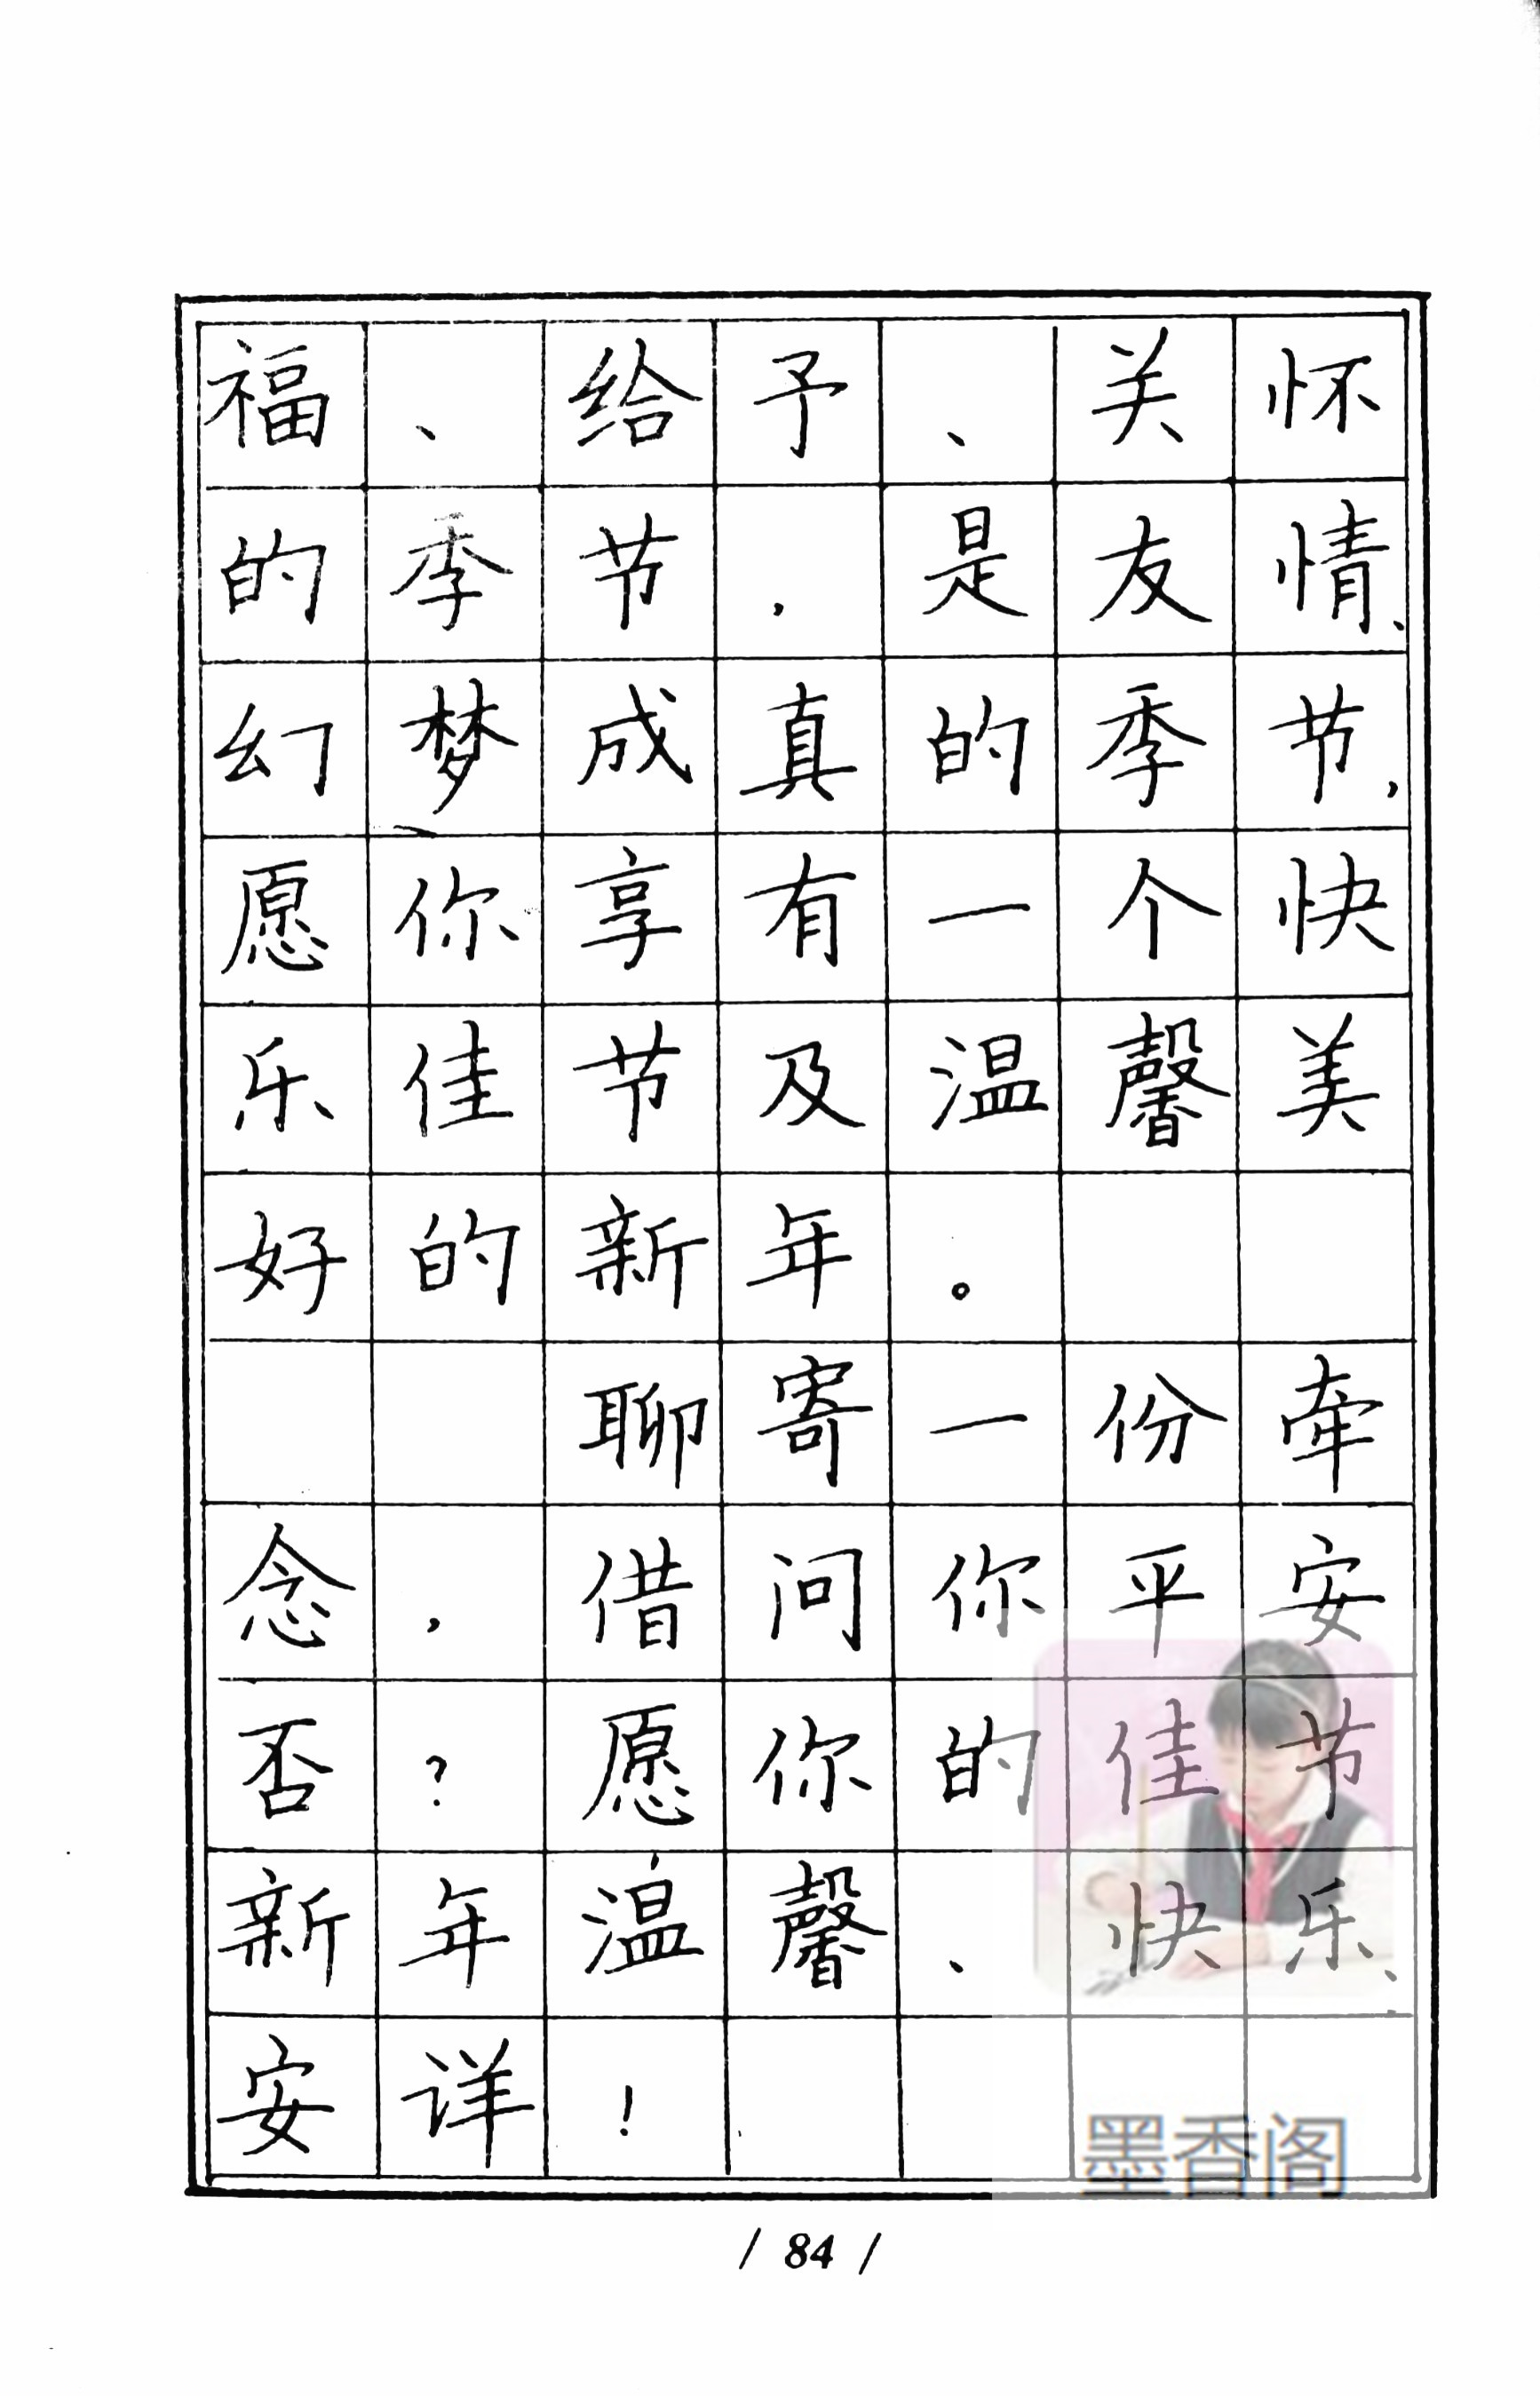 福、给予、关怀
的季节，是友情、
幻梦成真的季节，
愿你享有一个快
乐佳节及温馨美
好的新年。
聊寄一份牵
念，借问你平安
否？愿你的佳节
新年温馨、快乐、
安详！
墨香阁
/ 84 /